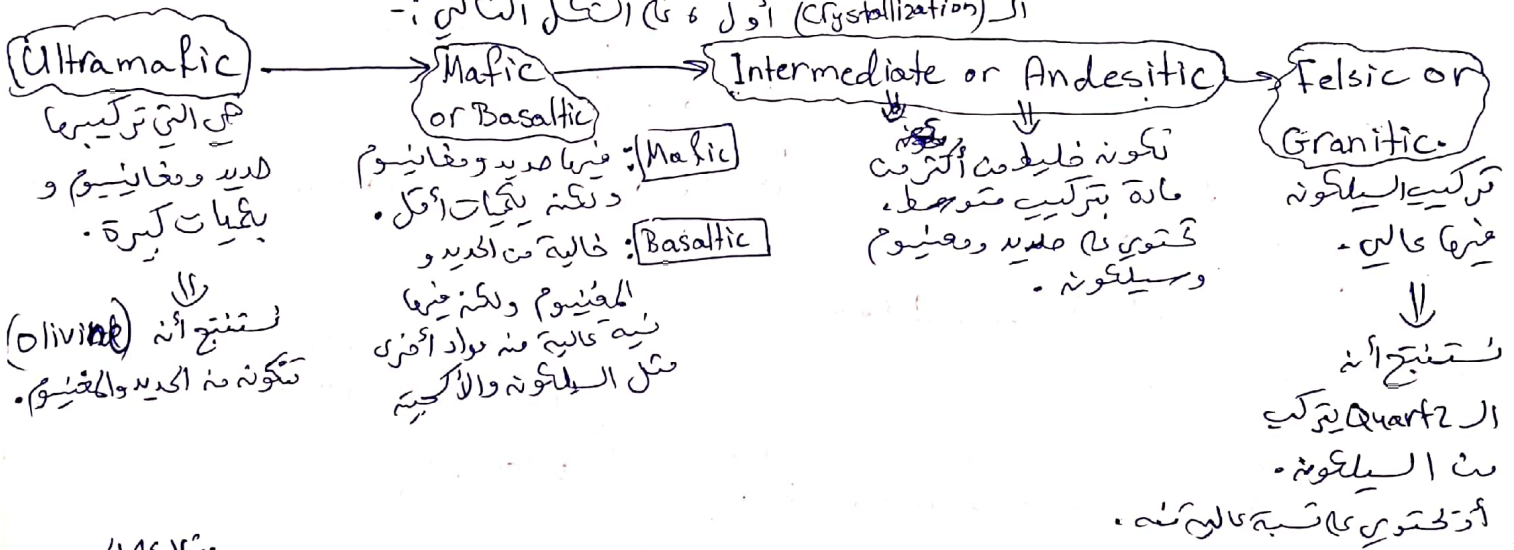 الـ (Crystallization) أول ، على الشكل التالي :-
Ultramafic → Mafic or Basaltic → Intermediate or Andesitic → Felsic or Granitic.
هي التي تركيبها
حديد ومغانيسيوم و
بكميات كبيرة .
⇓
نستنتج أن (olivine)
تتكون من الحديد والمغنيسيوم .
Mafic : فيها حديد ومغانيسيوم
ولكن بكميات أقل .
Basaltic : خالية من الحديد و
المغنيسيوم ولكن فيها
نسبة عالية من مواد أخرى
مثل السيلكون والأكسجين
⇓ ⇓
تكون خليط من أكثر من
مادة بتركيب متوسط ،
تحتوي على حديد ومغنيسيوم
وسيلكون .
تركيب السيلكون
فيها عالي .
⇓
نستنتج أن
الـ Quartz يتركب
من السيلكون .
أو تحتوي على نسبة عالية منه .